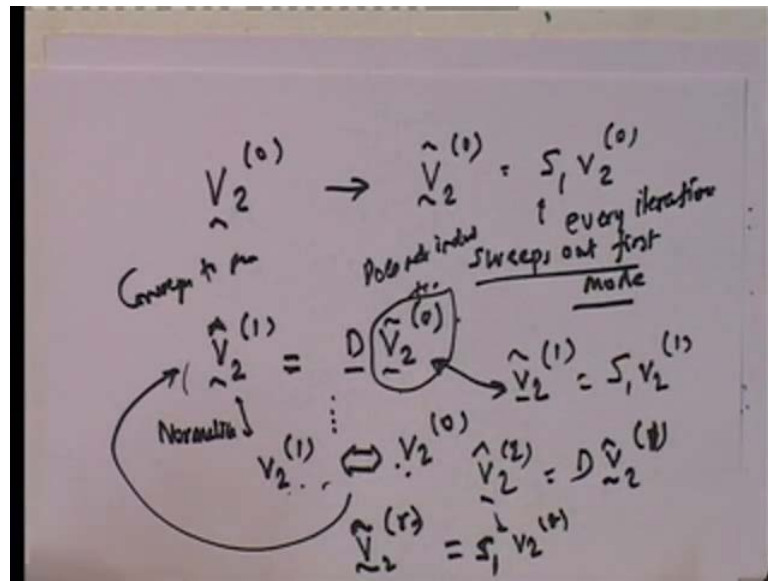 V₂⁽⁰⁾ → V̂₂⁽⁰⁾ = S₁ V₂⁽⁰⁾
↑ every iteration
sweeps out first
mode
Converges to
Does not include
V̂₂⁽¹⁾ = D Ṽ₂⁽⁰⁾
V̂₂⁽¹⁾ = S₁ V₂⁽¹⁾
Normalise
V₂⁽¹⁾ ⇔ V₂⁽⁰⁾
V̂₂⁽²⁾ = D V̂₂⁽¹⁾
Ṽ₂⁽ʳ⁾ = S₁ V₂⁽ʳ⁾